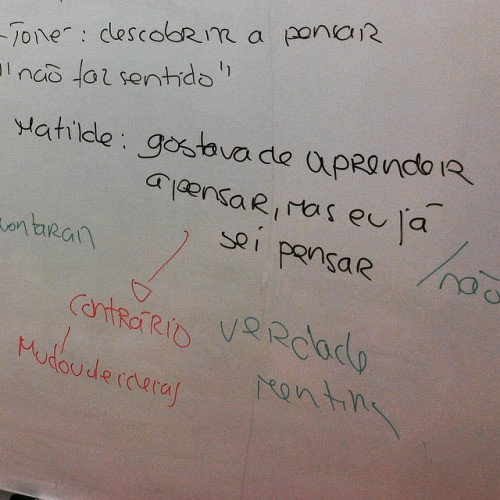 -Tone- : descobrir a pensar
"não faz sentido"
Matilde: gostava de aprender
a pensar, mas eu já
sei pensar
/não
contrário
Mudou de ideias
verdade
mentira